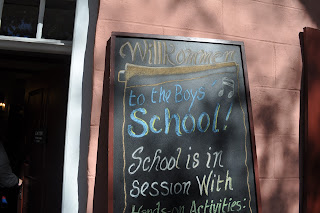 Willkommen
to the Boys
School!
School is in
session With
Hands-on Activities: